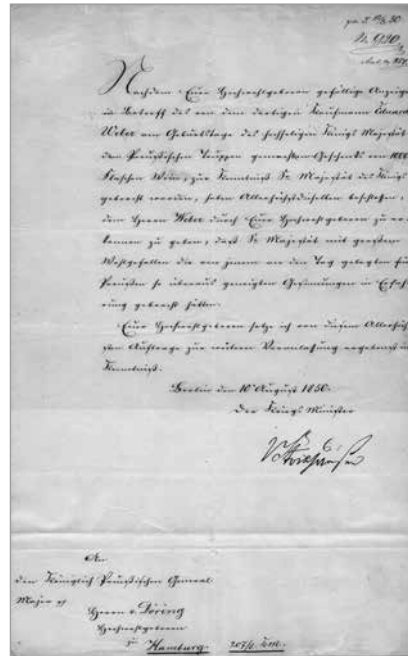 Nachdem Euer Hochwohlgeboren gefällige Anzeige
in Betreff des von dem dortigen Kaufmann Eduard
Weber am Geburtstage des hochseligen Königs Majestät
den Preußischen Truppen gemachten Geschenks von 1000
Flaschen Wein, zur Kenntniß Sr Majestät des Königs
gebracht worden, haben Allerhöchstdieselben befohlen,
dem Herrn Weber durch Euer Hochwohlgeboren zu er-
kennen zu geben, daß Se Majestät mit großem
Wohlgefallen die von jenem an den Tag gelegten für
Preußen so überaus geneigten Gesinnungen in Erfah-
rung gebracht hätten.
Euer Hochwohlgeboren setze ich von diesem Allerhöch-
sten Auftrage zur weitern Veranlassung ergebenst in
Kenntniß.
Berlin den 10 August 1850.
Der Kriegs Minister
An
den Königlich Preußischen General
Major
Herrn v. Döring
Hochwohlgeboren
Hamburg.